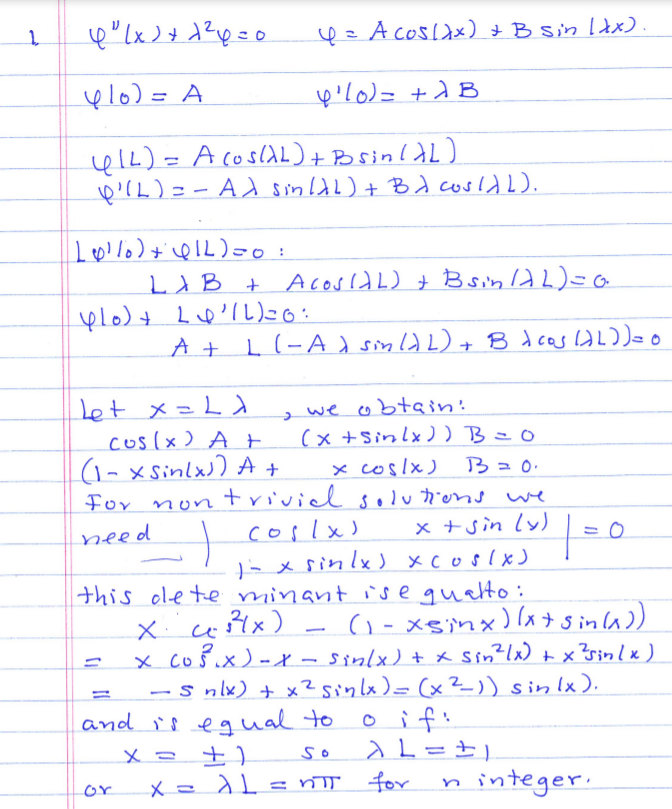 1 φ"(x) + λ²φ = 0 φ = A cos(λx) + B sin(λx).
φ(0) = A φ'(0) = +λB
φ(L) = A cos(λL) + B sin(λL)
φ'(L) = - Aλ sin(λL) + Bλ cos(λL).
Lφ'(0) + φ(L) = 0 :
LλB + A cos(λL) + B sin(λL) = 0.
φ(0) + Lφ'(L) = 0 :
A + L(-Aλ sin(λL) + Bλ cos(λL)) = 0
Let x = Lλ , we obtain:
cos(x) A + (x + sin(x)) B = 0
(1 - x sin(x)) A + x cos(x) B = 0.
For nontrivial solutions we
need | cos(x) x + sin(x) | = 0
1 - x sin(x) x cos(x)
this determinant is equal to:
x cos²(x) - (1 - x sin x)(x + sin(x))
= x cos²(x) - x - sin(x) + x sin²(x) + x² sin(x)
= - sin(x) + x² sin(x) = (x² - 1) sin(x).
and is equal to 0 if:
x = ±1 so λL = ±1
or x = λL = nπ for n integer.